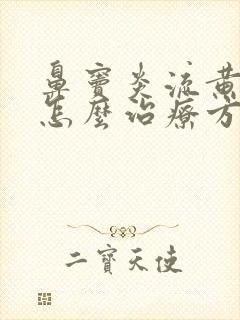 鼻竇炎流黃
怎麼治療方
二寶天使